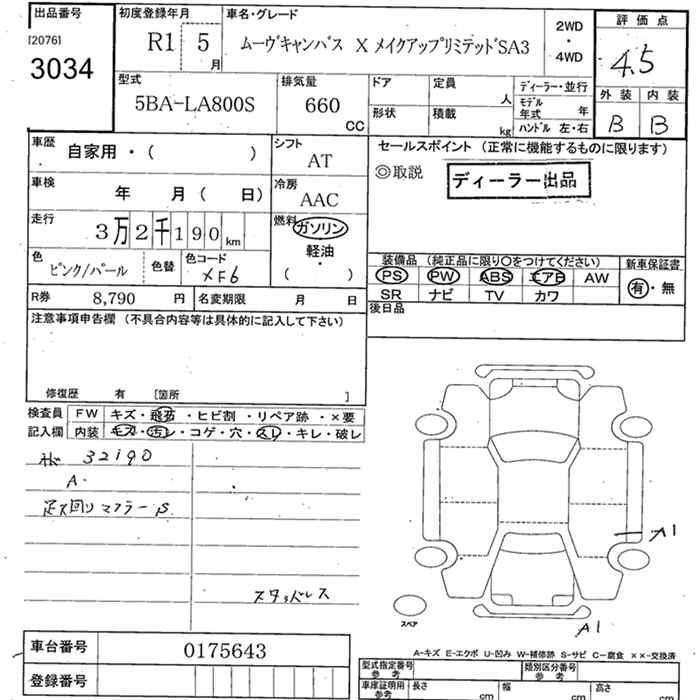 出品番号
[2076]
3034
初度登録年月
R1 5月
車名・グレード
ムーヴキャンバス X メイクアップリミテッドSA3
2WD
・
4WD
評価点
4.5
外装 内装
B B
型式
5BA-LA800S
排気量
660
CC
ドア
形状
定員
人
積載
kg
ディーラー・並行
モデル年式 年
ハンドル 左・右
車歴
自家用・( )
シフト
AT
セールスポイント (正常に機能するものに限ります)
◎取説
ディーラー出品
車検
年 月 ( 日)
冷房
AAC
走行
3万2千190 km
燃料
ガソリン
軽油
・
( )
色
ピンク/パール
色替
色コード
XF6
装備品 (純正品に限り○をつけてください)
新車保証書
PS PW ABS エアB AW
SR ナビ TV カワ
有・無
R券 8,790 円
名変期限 月 日
後日品
注意事項申告欄 (不具合内容等は具体的に記入して下さい)
修復歴 有 [箇所 ]
検査員
記入欄
FW キズ・飛石・ヒビ割・リペア跡・×要
内装 キズ・汚レ・コゲ・穴・スレ・キレ・破レ
32190
A
足ス回り マフラーS
スタッドレス
A1
A1
スペア
車台番号 0175643
登録番号
A-キズ E-エクボ U-凹み W-補修跡 S-サビ C-腐食 ××-交換済
型式指定番号
参考
類別区分番号
参考
車庫証明用
参考
長さ cm
幅 cm
高さ cm